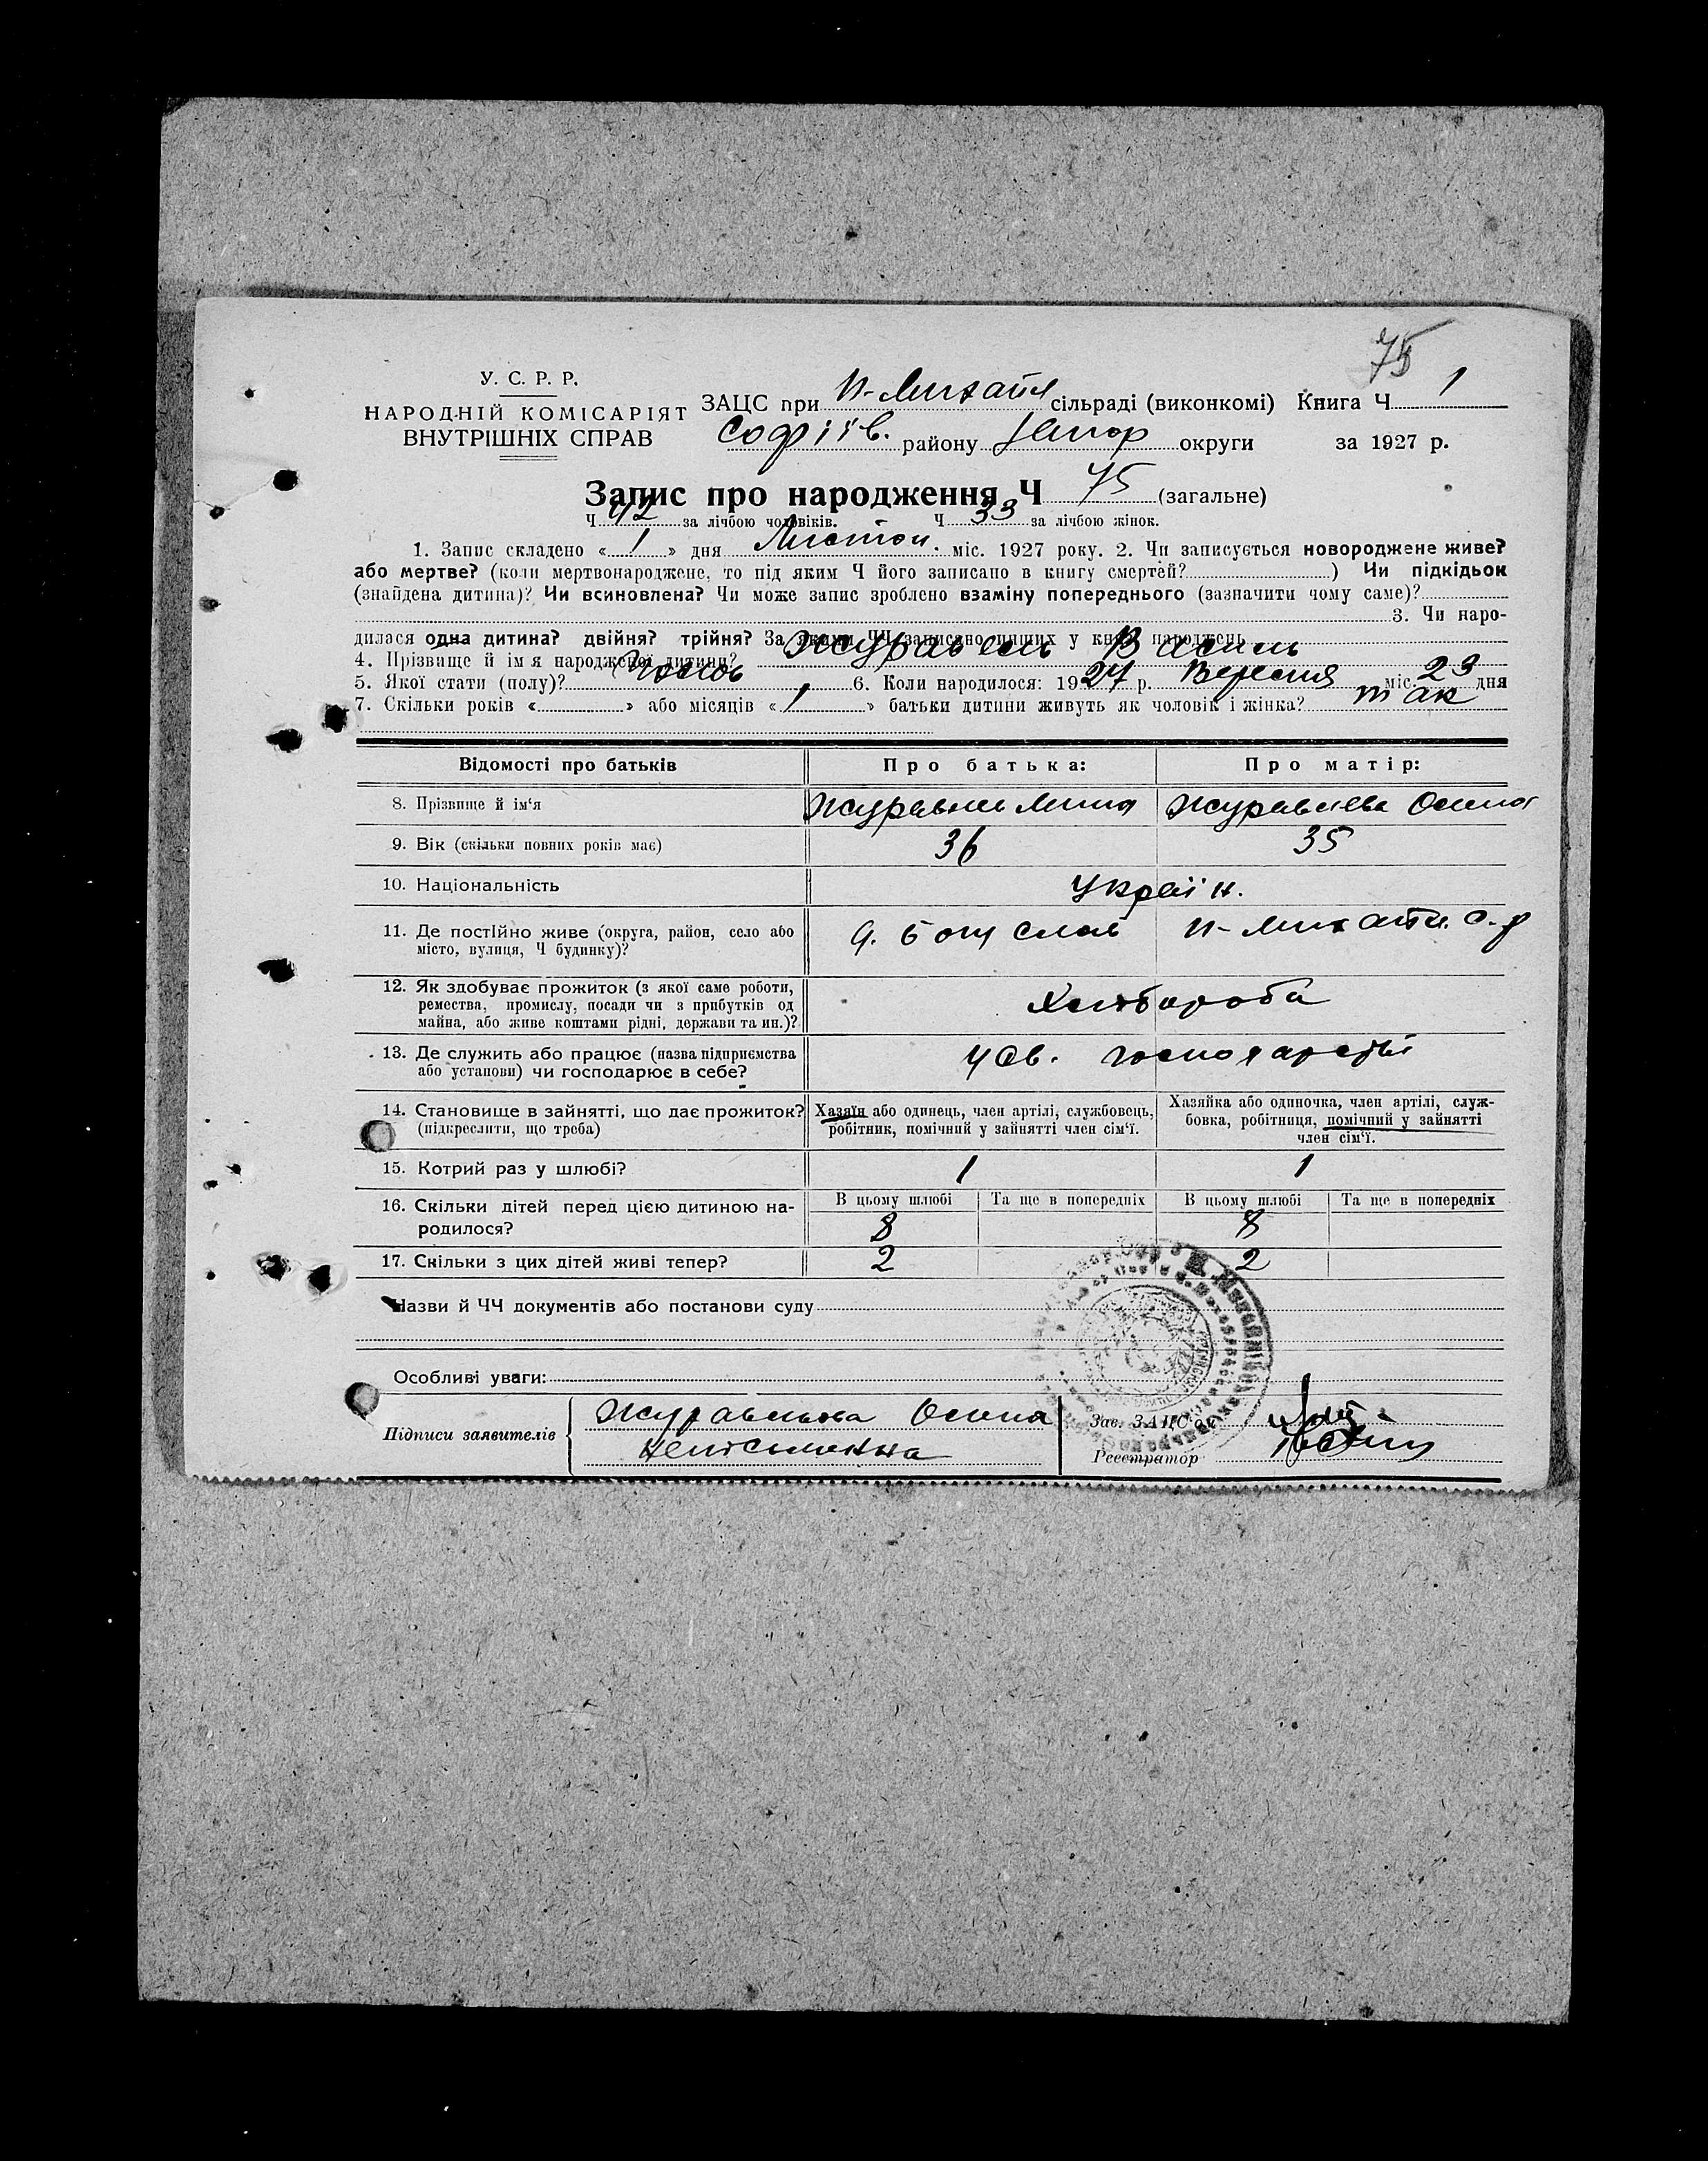 75
У. С. Р. Р.
НАРОДНІЙ КОМІСАРІЯТ
ВНУТРІШНІХ СПРАВ
ЗАЦС при Н-Михайл сільраді (виконкомі) Книга Ч 1
Софіїв. району Запор округи за 1927 р.
Запис про народження Ч 75 (загальне)
Ч 42 за лічбою чоловіків. Ч 33 за лічбою жінок.
1. Запис складено « 1 » дня Листоп. міс. 1927 року. 2. Чи записується новороджене живе?
або мертве? (коли мертвонароджене, то під яким Ч його записано в книгу смертей? ) Чи підкідьок
(знайдена дитина)? Чи всиновлена? Чи може запис зроблено взаміну попереднього (зазначити чому саме)?
3. Чи наро-
дилася одна дитина? двійня? трійня? За якими ЧЧ записано инших у книзі народжень
4. Прізвище й ім'я народженої дитини? Журавель Василь
5. Якої стати (полу)? Чолов 6. Коли народилося: 1927 р. Вересня міс. 23 дня
7. Скільки років « » або місяців « 1 » батьки дитини живуть як чоловік і жінка? так
Відомості про батьків Про батька: Про матір:
8. Прізвище й ім'я Журавель Журавлева
9. Вік (скільки повних років має) 36 35
10. Національність Україн.
11. Де постійно живе (округа, район, село або
місто, вулиця, Ч будинку)? Н-Михайл. с.р
12. Як здобуває прожиток (з якої саме роботи,
ремества, промислу, посади чи з прибутків од
майна, або живе коштами рідні, держави та ин.)? Хлібороба
13. Де служить або працює (назва підприємства
або установи) чи господарює в себе? У св. господарстві
14. Становище в зайнятті, що дає прожиток?
(підкреслити, що треба)
Хазяїн або одинець, член артілі, службовець,
робітник, помічний у зайнятті член сім'ї.
Хазяйка або одиночка, член артілі, служ-
бовка, робітниця, помічний у зайнятті
член сім'ї.
15. Котрий раз у шлюбі? 1 1
16. Скільки дітей перед цією дитиною на-
родилося?
В цьому шлюбі Та ще в попередніх В цьому шлюбі Та ще в попередніх
8 8
17. Скільки з цих дітей живі тепер? 2 2
Назви й ЧЧ документів або постанови суду
Особливі уваги:
Підписи заявителів Журавльова
неписьменна
Зав. ЗАЦС'ом
Реєстратор